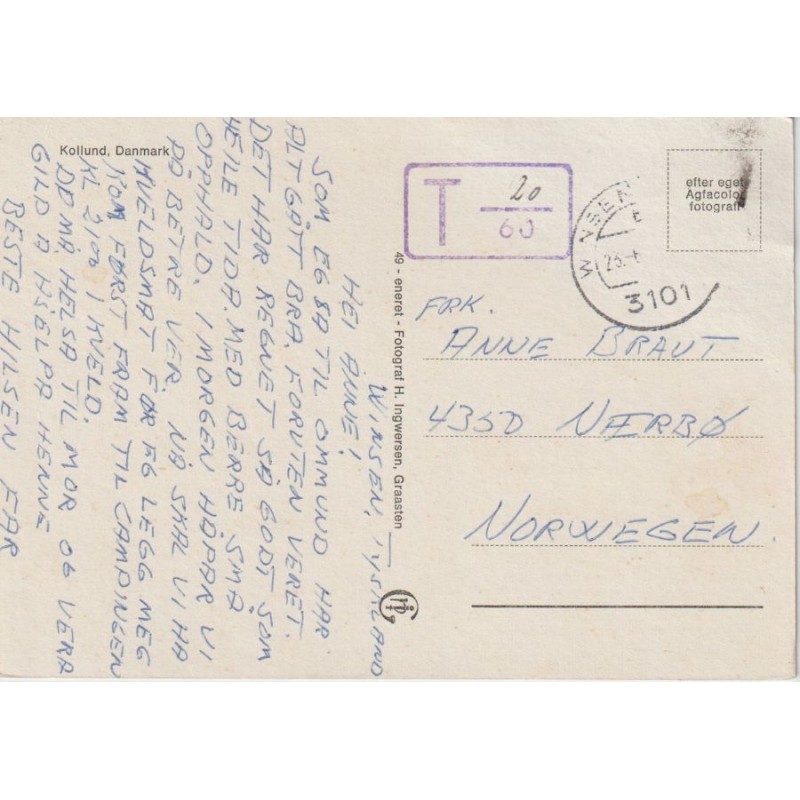 Kollund, Danmark
WINSEN, TYSKLAND
HEI ANNE!
SOM EG SA TIL OMMUND HAR
ALT GÅTT BRA, FORUTEN VERET.
DET HAR REGNET SÅ GODT SOM
HEILE TIDA. MED BERRE SMÅ
OPPHALD. I MORGEN HÅPAR VI
PÅ BETRE VER. NÅ SKAL VI HA
KVELDSMAT FØR EG LEGG MEG
KOM FØRST FRAM TIL CAMPINGEN
KL 2100 I KVELD.
DÅ MÅ HELSA TIL MOR OG VERA
GILD Å HJELPA HENNE
BESTE HILSEN FAR
49 - eneret - Fotograf H. Ingwersen, Graasten
T 20
60
3101
efter eget
Agfacolor
fotografi
FRK.
ANNE BRAUT
4350 NÆRBØ
NORWEGEN.